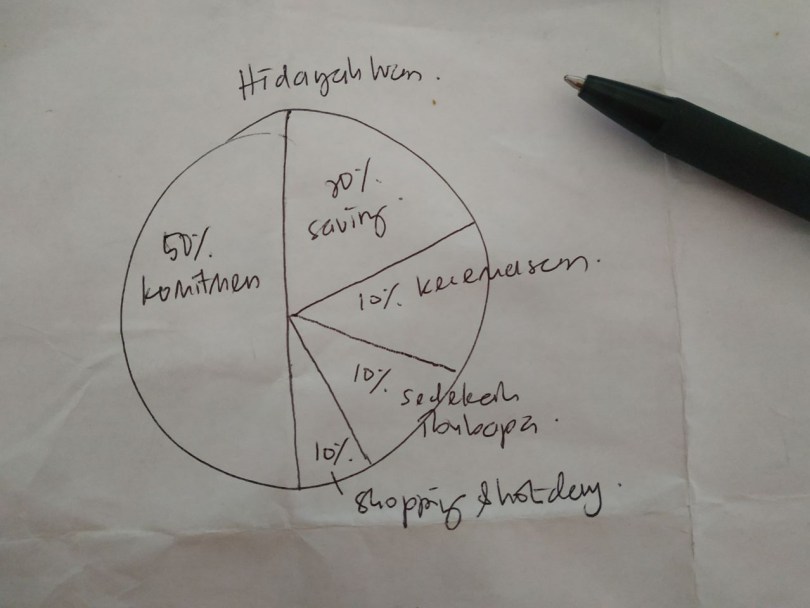 Hidayah Wan.
20%.
saving.
50%.
komitmen
10%. kecemasan.
10%
sedekah
ibubapa.
10%.
shopping & holiday.